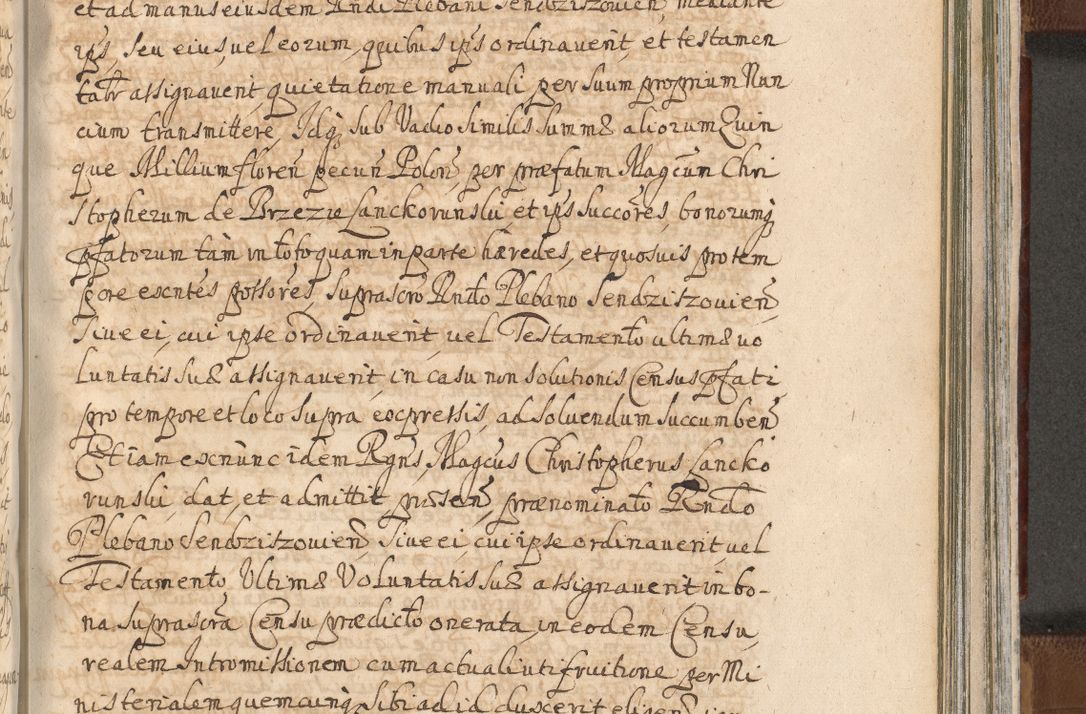 et ad manus eiusdem Rndi Plebani Sendziszouien, mediante
ips, seu eius, uel eorum, quibus ips ordinauerit, et testamen
tatr assignauerit, quietatione manuali per suum proprium Nun
cium transmittere, Idq sub Vadio similis summæ aliorum Quin
que Millium floren pecun Polon, per præfatum Magcum Chri
stopherum de Brzezie Lanckorunski et ips succores, bonorumq
pfatorum tam in toto quam in parte hæredes, et quosuis pro tem
pore exntes possores, suprascro Rndo Plebano Sendziszouien,
Siue ei, cui ipse ordinauerit, uel Testamento ultimæ uo
luntatis suæ assignauerit, in casu non solutionis Census pfati
pro tempore et loco supra expressis, ad soluendum succumben
Etiam exnunc idem Rgns, Magcus Christopherus Lancko
runski, dat, et admittit præsen, prænominato Rndo
Plebano Sendziszouien, Siue ei, cui ipse ordinauerit, uel
Testamento, Ultimæ Voluntatis suæ assignauerit in bo-
na suprascra Censu prædicto onerata, in eodem Censu,
realem Intromissionem cum actuali utifruitione per Mi
nisterialem quemcunq sibi ad id duxerit eligen